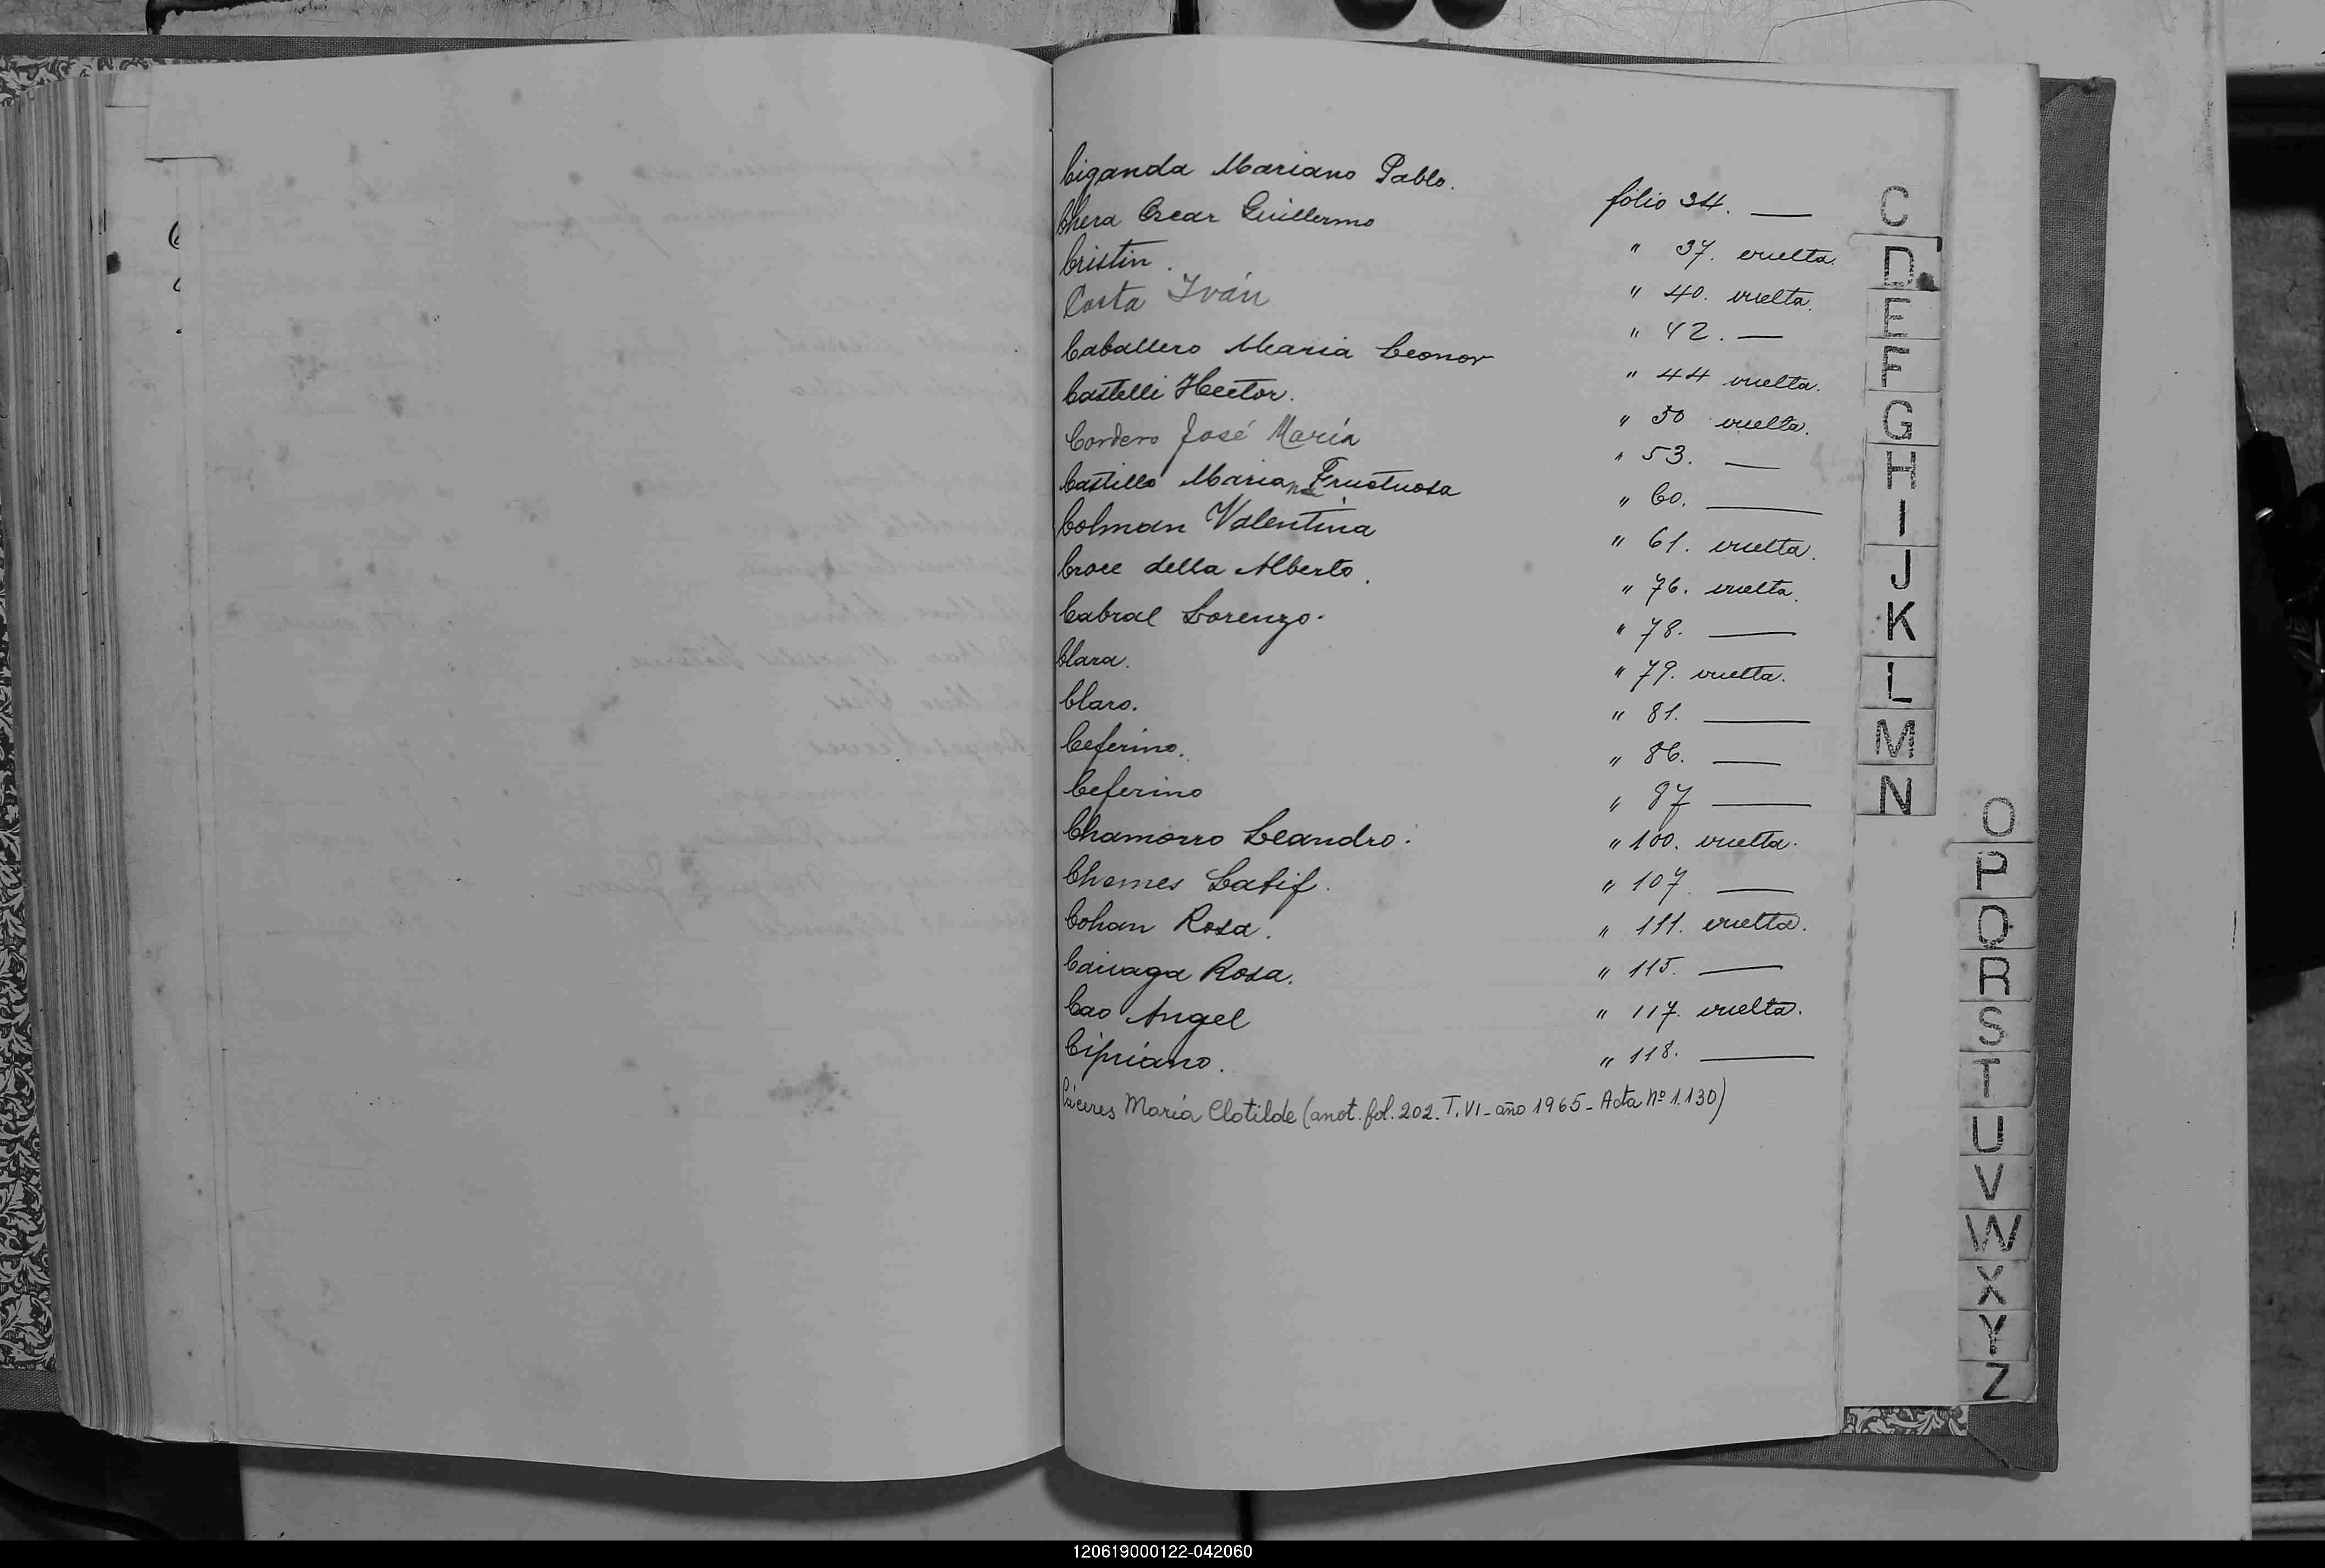 Ciganda Mariano Pablo. folio 34. —
Chera Oscar Guillermo " 37. vuelta.
Cristin. " 40. vuelta.
Costa Iván " 42. —
Caballero Maria Leonor " 44 vuelta.
Castelli Hector. " 50 vuelta.
Cordero José María " 53. —
Castillo Mariana Fructuosa " 60. —
Colman Valentina " 61. vuelta.
Croce della Alberto. " 76. vuelta.
Cabral Lorenzo. " 78. —
Clara. " 79. vuelta.
Claro. " 81. —
Ceferino. " 86. —
Ceferino " 87 —
Chamorro Leandro. " 100. vuelta.
Chemes Latif. " 107. —
Cohan Rosa. " 111. vuelta.
Rosa. " 115. —
Cao Angel " 117. vuelta.
Cipriano. " 118. —
Cáceres María Clotilde (anot. fol. 202. T. VI - año 1965 - Acta Nº 1.130)
C
D
E
F
G
H
I
J
K
L
M
N
O
P
Q
R
S
T
U
V
W
X
Y
Z
120619000122-042060